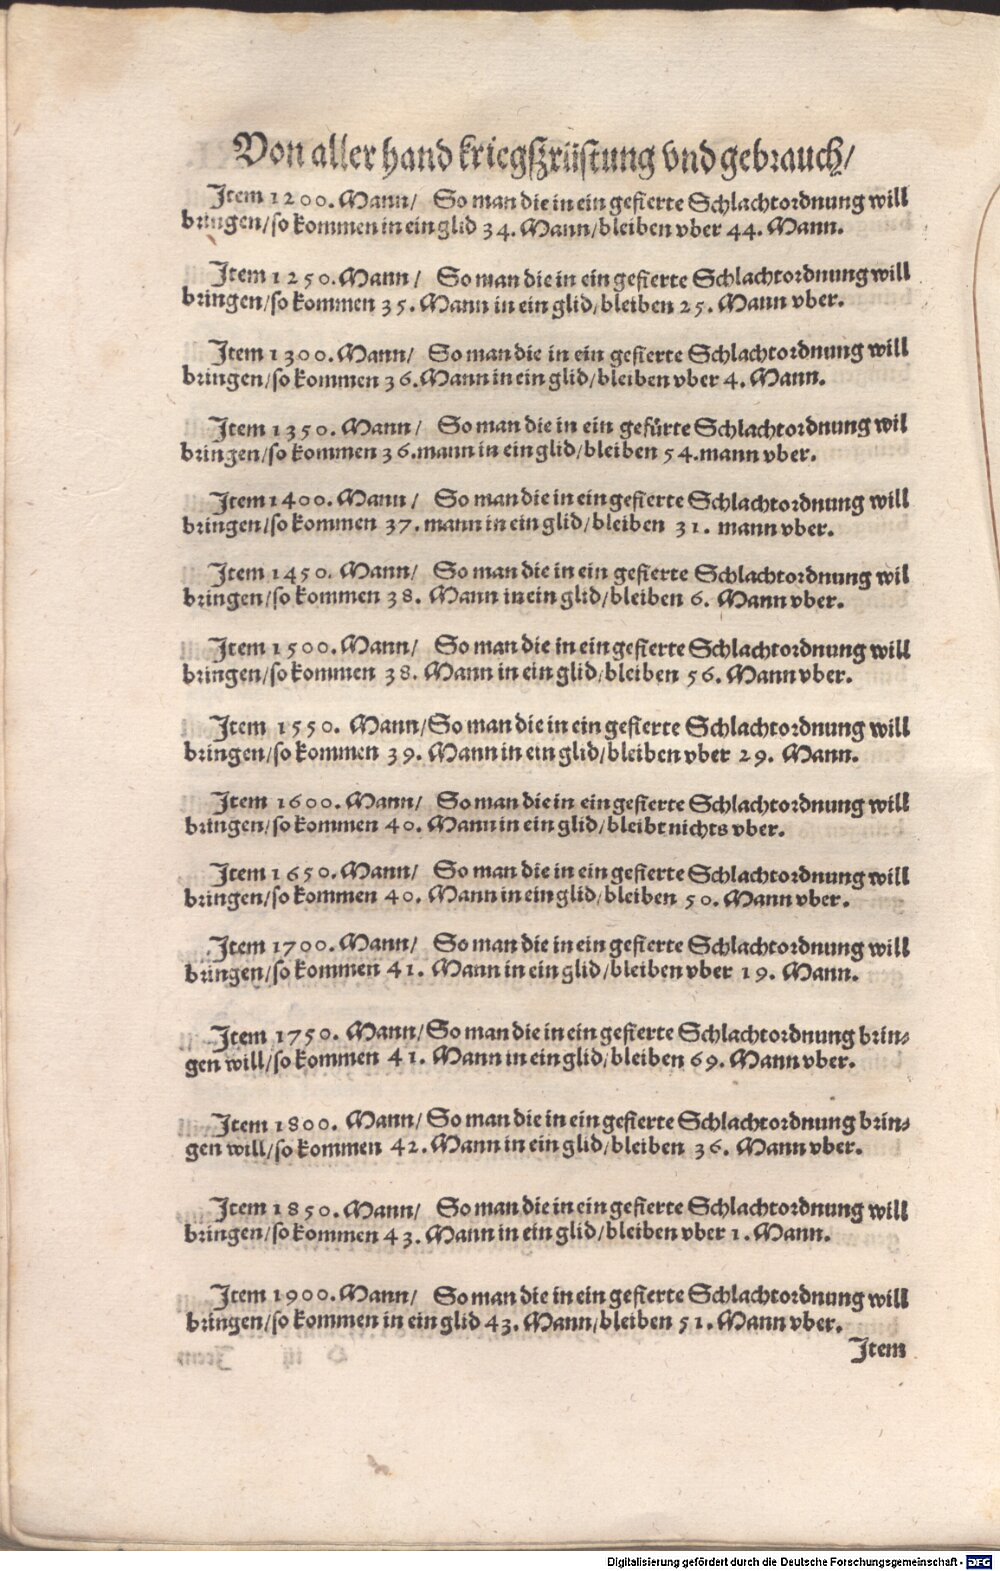 Von aller hand kriegszrüstung vnd gebrauch/
Item 1200. Mann/ So man die in ein gefierte Schlachtordnung will
bringen/so kommen in ein glid 34. Mann/bleiben vber 44. Mann.
Item 1250. Mann/ So man die in ein gefierte Schlachtordnung will
bringen/so kommen 35. Mann in ein glid/bleiben 25. Mann vber.
Item 1300. Mann/ So man die in ein gefierte Schlachtordnung will
bringen/so kommen 36. Mann in ein glid/bleiben vber 4. Mann.
Item 1350. Mann/ So man die in ein gefürte Schlachtordnung wil
bringen/so kommen 36. mann in ein glid/bleiben 54. mann vber.
Item 1400. Mann/ So man die in ein gefierte Schlachtordnung will
bringen/so kommen 37. mann in ein glid/bleiben 31. mann vber.
Item 1450. Mann/ So man die in ein gefierte Schlachtordnung wil
bringen/so kommen 38. Mann in ein glid/bleiben 6. Mann vber.
Item 1500. Mann/ So man die in ein gefierte Schlachtordnung will
bringen/so kommen 38. Mann in ein glid/bleiben 56. Mann vber.
Item 1550. Mann/So man die in ein gefierte Schlachtordnung will
bringen/so kommen 39. Mann in ein glid/bleiben vber 29. Mann.
Item 1600. Mann/ So man die in ein gefierte Schlachtordnung will
bringen/so kommen 40. Mann in ein glid/bleibt nichts vber.
Item 1650. Mann/ So man die in ein gefierte Schlachtordnung will
bringen/so kommen 40. Mann in ein glid/bleiben 50. Mann vber.
Item 1700. Mann/ So man die in ein gefierte Schlachtordnung will
bringen/so kommen 41. Mann in ein glid/bleiben vber 19. Mann.
Item 1750. Mann/So man die in ein gefierte Schlachtordnung brin-
gen will/so kommen 41. Mann in ein glid/bleiben 69. Mann vber.
Item 1800. Mann/So man die in ein gefierte Schlachtordnung brin-
gen will/so kommen 42. Mann in ein glid/bleiben 36. Mann vber.
Item 1850. Mann/ So man die in ein gefierte Schlachtordnung will
bringen/so kommen 43. Mann in ein glid/bleiben vber 1. Mann.
Item 1900. Mann/ So man die in ein gefierte Schlachtordnung will
bringen/so kommen in ein glid 43. Mann/bleiben 51. Mann vber.
Item
Digitalisierung gefördert durch die Deutsche Forschungsgemeinschaft - DFG